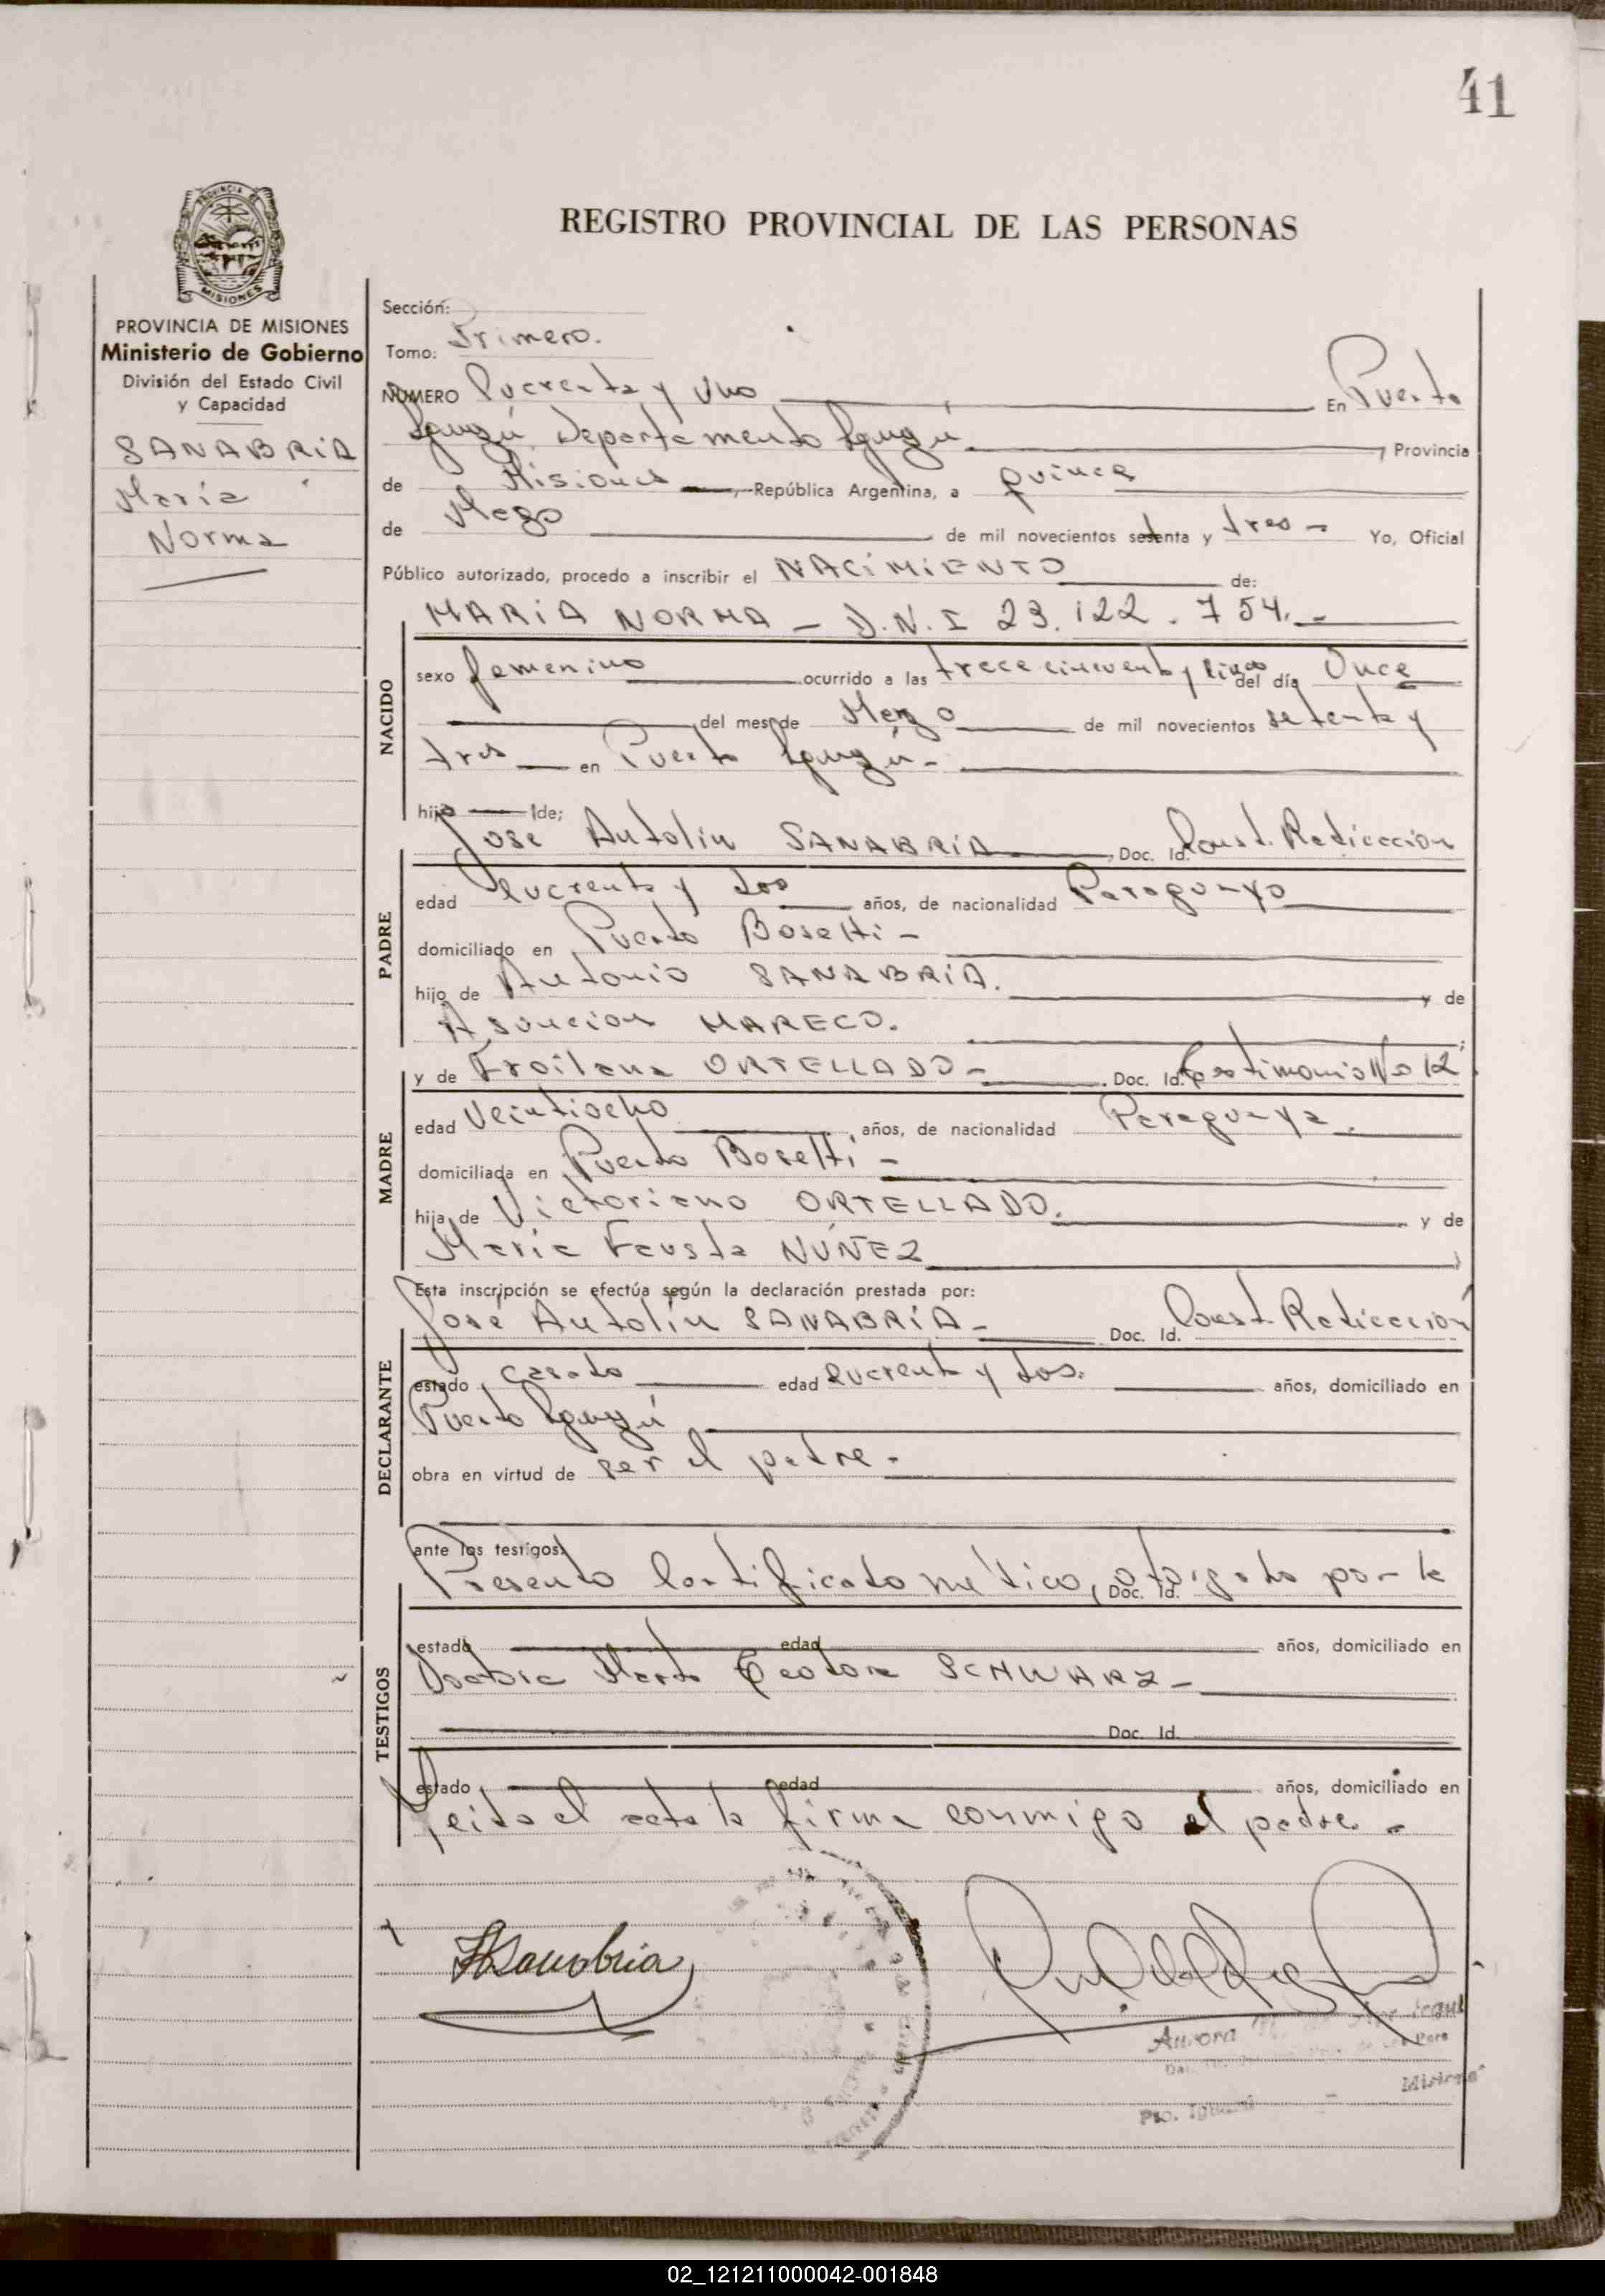 41
REGISTRO PROVINCIAL DE LAS PERSONAS
PROVINCIA DE MISIONES
Ministerio de Gobierno
División del Estado Civil
y Capacidad
SANABRIA
María
Norma
Sección:
Tomo: Primero.
NUMERO Cuarenta y Uno En Puerto
Iguazú Departamento Iguazú, Provincia
de Misiones, República Argentina, a quince
de Marzo de mil novecientos setenta y tres - Yo, Oficial
Público autorizado, procedo a inscribir el NACIMIENTO de:
MARIA NORMA - D.N.I 23.122.754.-
NACIDO
sexo femenino ocurrido a las trece cincuenta y cinco del día Once
del mes de Marzo de mil novecientos setenta y
tres en Puerto Iguazú -
hija de;
José Antolín SANABRIA Doc. Id. Const. Radicación
PADRE
edad Cuarenta y dos años, de nacionalidad Paraguayo
domiciliado en Puerto Bosetti -
hijo de Antonio SANABRIA. y de
Asuncion MARECO.
MADRE
y de Froilana ORTELLADO - Doc. Id. Testimonio No 12
edad Veintiocho años, de nacionalidad Paraguaya.
domiciliada en Puerto Bosetti -
hija de Victoriano ORTELLADO. y de
María Fausta NÚÑEZ
Esta inscripción se efectúa según la declaración prestada por:
José Antolín SANABRIA - Doc. Id. Const. Radicación
DECLARANTE
estado casado edad cuarenta y dos. años, domiciliado en
Puerto Iguazú
obra en virtud de ser el padre -
ante los testigos:
Presento Certificado médico, otorgado por la
Doc. Id.
TESTIGOS
estado edad años, domiciliado en
Doctora Marta Teodora SCHWARZ -
Doc. Id.
estado edad años, domiciliado en
Leida el acta la firma conmigo el padre -
JASanabria
Aurora
Pto. Iguazú
02_121211000042-001848